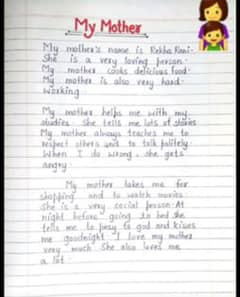 My Mother
My mother's name is Rekha Rani.
She is a very loving person.
My mother cooks delicious food.
My mother is also very hard-
working
My mother helps me with my
studies. She tells me lots of stories
My mother always teaches me to
respect others and to talk politely.
When I do wrong, she gets
angry.
My mother takes me for
shopping and to watch movies.
She is a very social person. At
night before going to bed she
tells me to pray to god and kisses
me goodnight. I love my mother
very much. She also loves me
a lot.